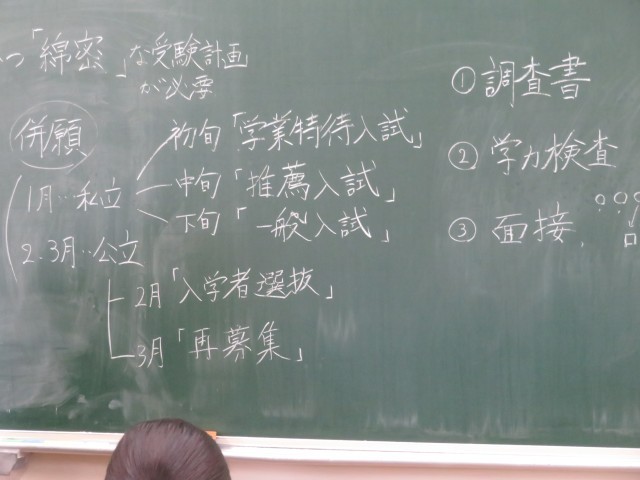 つ「綿密」な受験計画
が必要
併願
1月…私立
初旬「学業特待入試」
中旬「推薦入試」
下旬「一般入試」
2.3月…公立
2月「入学者選抜」
3月「再募集」
① 調査書
② 学力検査
③ 面接.